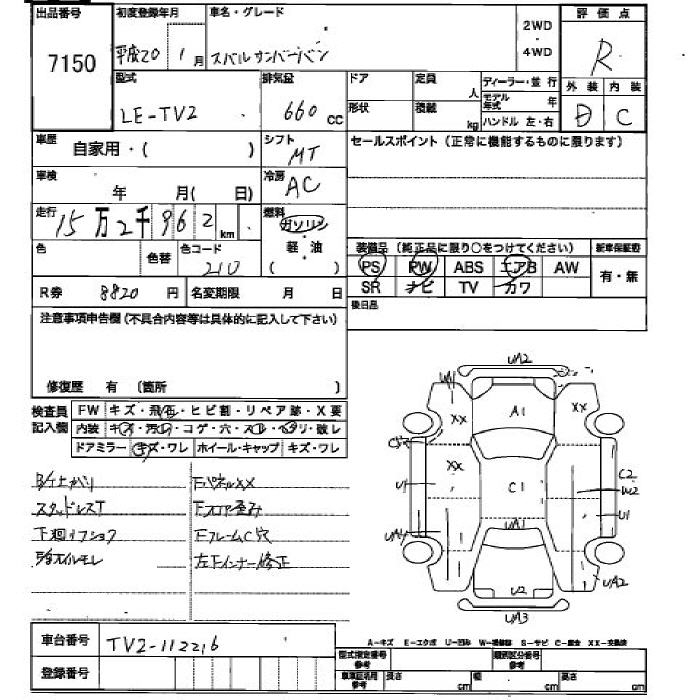 出品番号
7150
初度登録年月
平成20年 1月
車名・グレード
スバル サンバーバン
2WD
4WD
評価点
R
外装 内装
D C
型式
LE-TV2
排気量
660 cc
ドア
形状
定員 人
積載 kg
ディーラー・並行
モデル年式 年
ハンドル 左・右
車歴
自家用・( )
シフト
MT
セールスポイント(正常に機能するものに限ります)
車検
年 月( 日)
冷房
AC
走行
15万2千962 km
燃料
ガソリン
軽油
( )
色
色替
色コード
210
装備品(純正品に限り○をつけてください)
新車保証書
PS PW ABS エアB AW
SR ナビ TV カワ
有・無
R券 8820 円
名変期限 月 日
後日品
注意事項申告欄(不具合内容等は具体的に記入して下さい)
修復歴 有 〔箇所 〕
検査員記入欄
FW キズ・飛石・ヒビ割・リペア跡・X要
内装 キズ・汚れ・コゲ・穴・スレ・ヘタリ・破レ
ドアミラー キズ・ワレ ホイール・キャップ キズ・ワレ
スタッドレスT
下廻り
オイルモレ
FパネルXX
Fフロア歪み
FフレームC穴
左Fインナー修正
UA2
A1
XX
XX
XX
U1
C1
C2
W2
U1
UA1
UA2
U2
UA3
A-キズ E-エクボ U-凹み W-補修跡 S-サビ C-腐食 XX-交換済
車台番号
TV2-112216
登録番号
型式指定番号
参考
類別区分番号
参考
車車証活用
参考
長さ cm
幅 cm
高さ cm